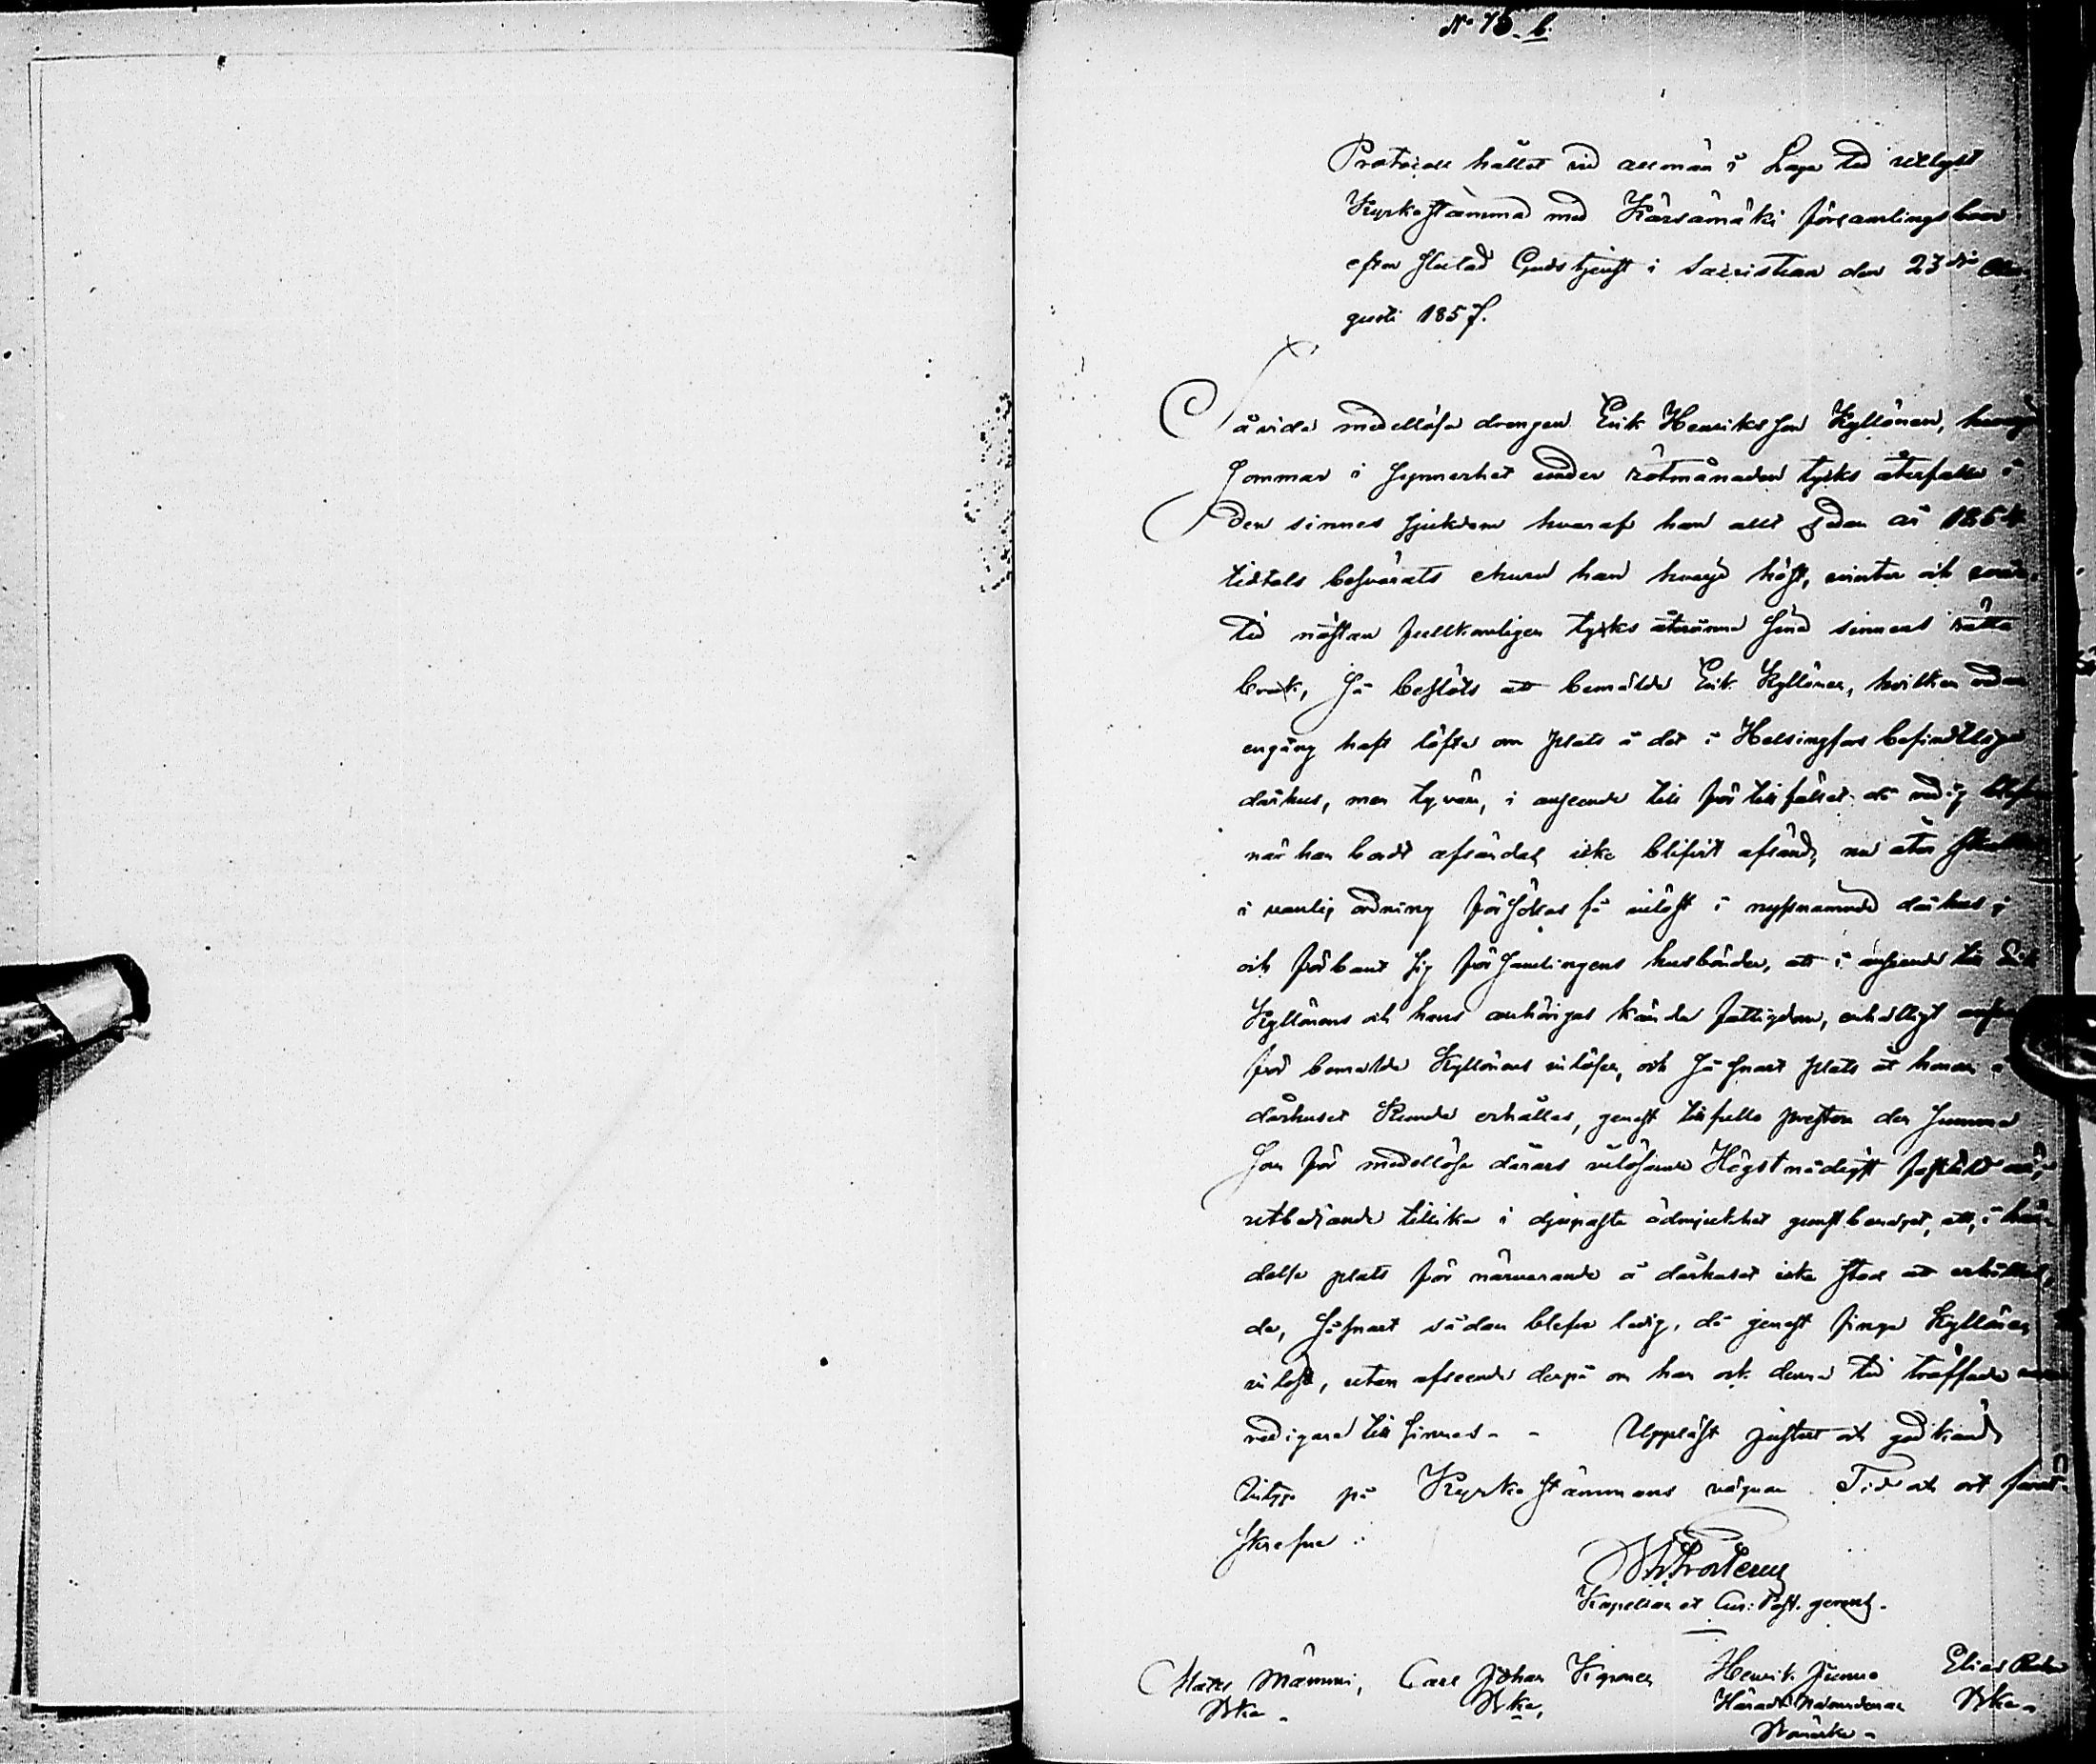 N:o 15. b.
Protocoll hållet vid allmän i Laga tid utlyst
Kyrkostämma med Kärsämäki församlingsboer
efter slutad Gudstjenst i Sacristian den 23dje Au-
gusti 1857.
Såvida medellösa drengen Erik Henriksson Kyllönen, hvarje
sommar i synnerhet under rötmånaden tycks återfalla i
den sinnes sjukdom hvaraf han allt sedan år 1854
tidtals besvärats ehuru han hvarje höst, vinter och vår-
tid nästan fullkomligen tycks återvinna sina sinnens rätta
bruk, så beslöts att bemälde Erik Kyllönen, hvilken redan
engång haft löfte om plats å det i Helsingfors befindtliga
dårhus, men tyvärr, i anseende till för tillfället då redig
när han bordt afsändas icke blifvit afsänd, nu åter skulle
i vanlig ordning försökas få inlöst i nyssnämnde dårhus;
och förbant sig församlingens husbönder, att i anseende till Erik
Kyllönens och hans anhörigas kända fattigdom, enhälligt
för bemälde Kyllönens inlösen, och så snart plats åt honom å
dårhuset kunde erhållas, genast tillfullo prestera den summa
som för medellösa dårars inlösande Högstnådigst faststäld
utbedjande tillika i djupaste ödmjukhet gunstbenäget, att, i hän-
delse plats för närvarande å dårhuset icke stod att erhållas,
de, så snart sådan blefve ledig, då genast finge Kyllönen
inlöst, utan afseende derpå om han och denna tid träffade vara
redigare till sinnes. - - Uppläst justerat och godkändt
betyga på Kyrkostämmans vägnar. Tid och ort förut-
skrefne:
Kapellan et Cur: Past. gerens.
Mats Mämmi, Carl Johan Kiponen Henrik Junno Elias
Bka. Bka, Häradts Nämndeman Bka.
Bomärke.